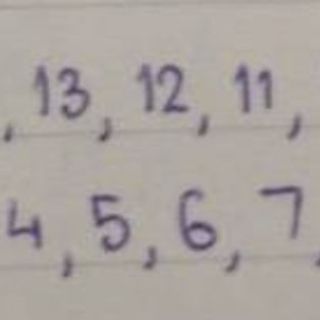 , 13, 12, 11,
4, 5, 6, 7,